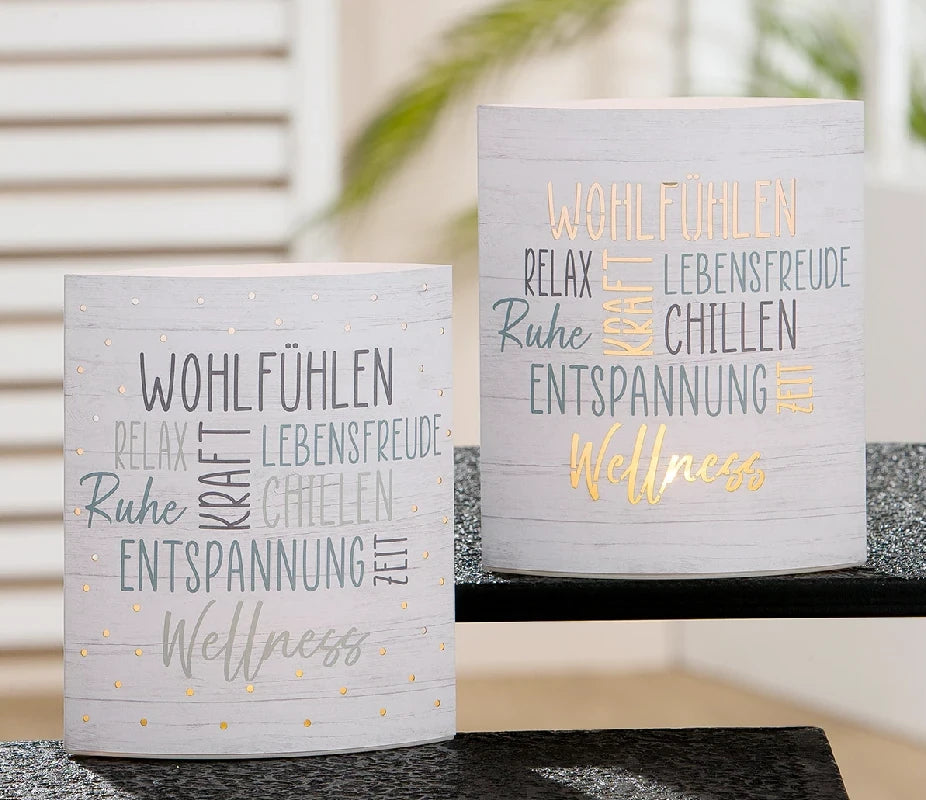 WOHLFÜHLEN
RELAX KRAFT LEBENSFREUDE
Ruhe CHILLEN
ENTSPANNUNG ZEIT
Wellness
WOHLFÜHLEN
RELAX KRAFT LEBENSFREUDE
Ruhe CHILLEN
ENTSPANNUNG ZEIT
Wellness